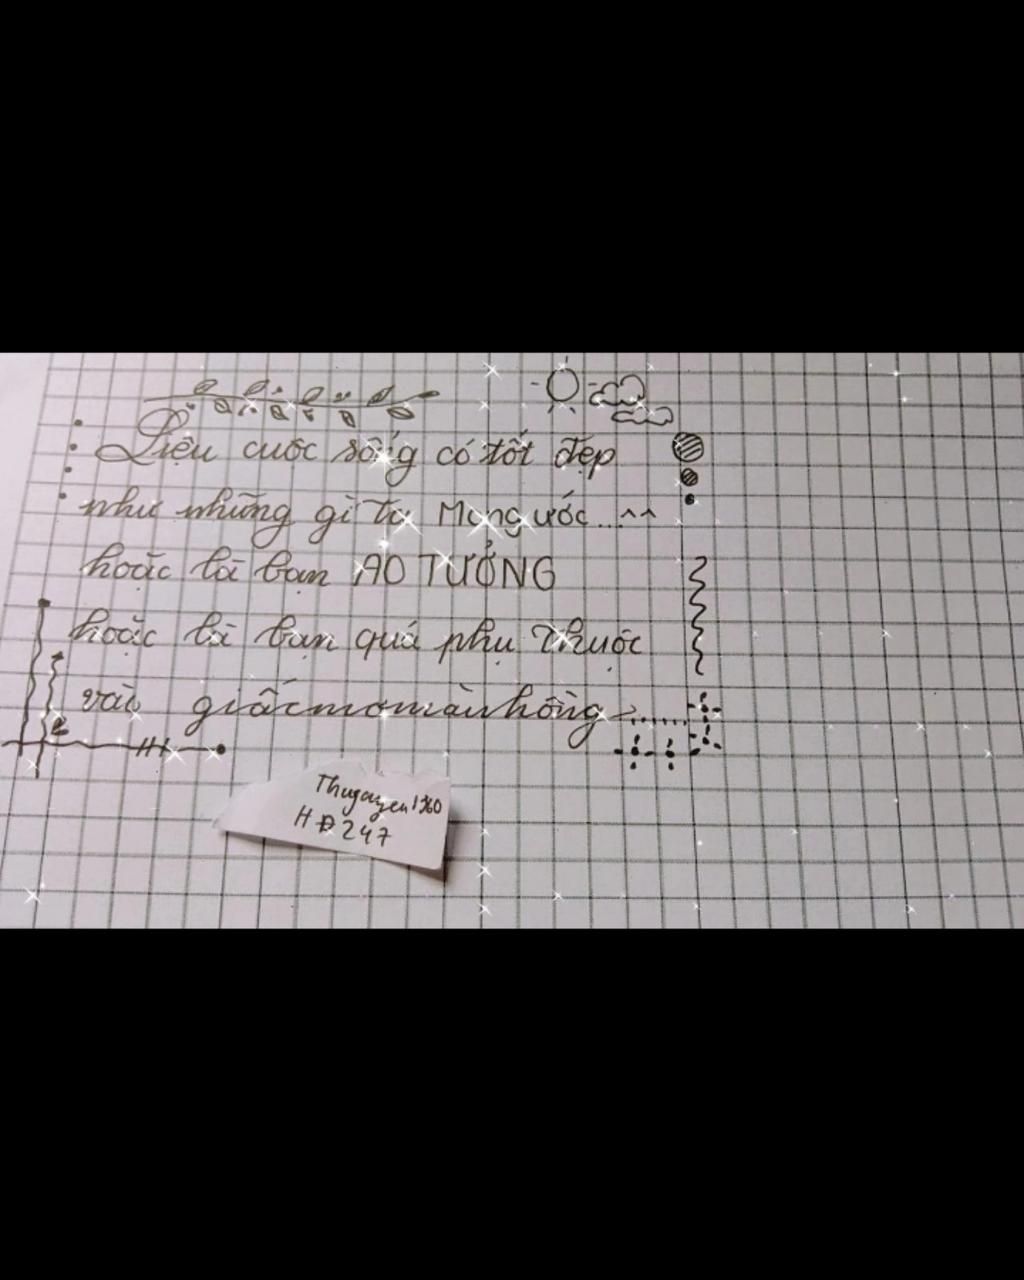 Liệu cuộc sống có tốt đẹp
như những gì ta Mong ước...^^
hoặc là bạn ẢO TƯỞNG
hoặc là bạn quá phụ thuộc
vào giấc mơ màu hồng
HĐ247